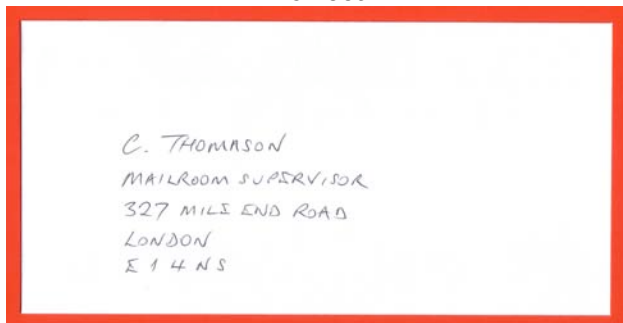 C. THOMASON
MAILROOM SUPERVISOR
327 MILE END ROAD
LONDON
E1 4NS